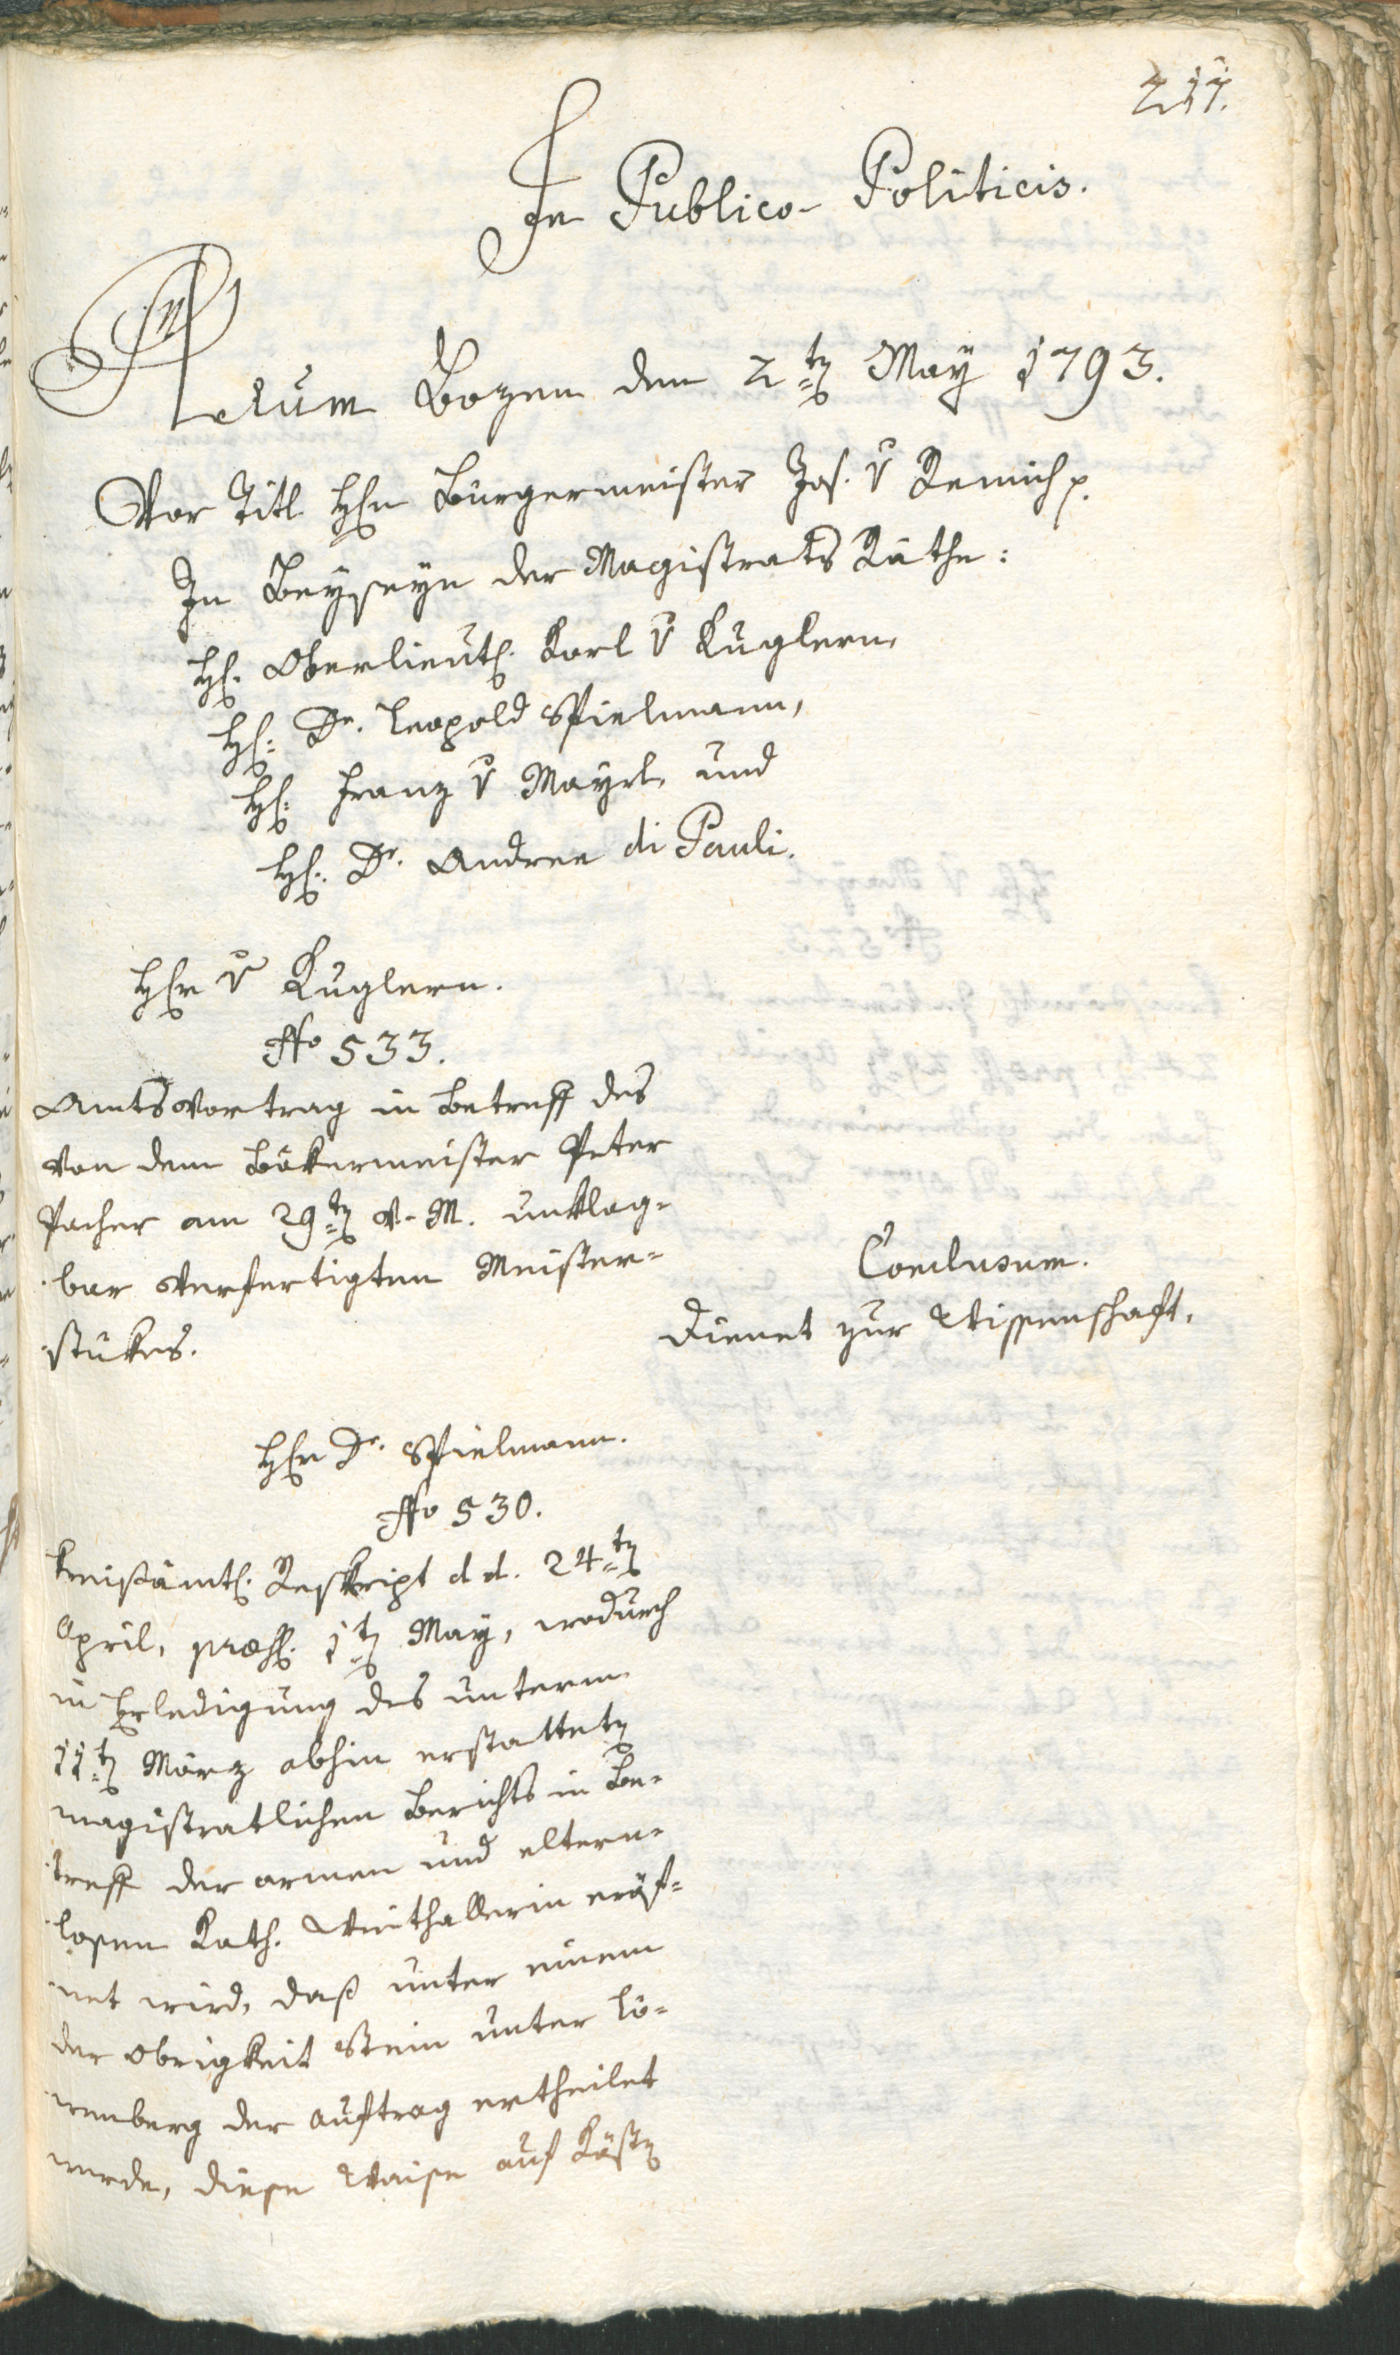 217.
In Publico-Politicis.
Actum Bozen den 2ten May 1793.
Vor Titl. Hrn Bürgermeister Jos. v Remich p.
In Beyseyn der Magistrats Räthe:
Hr. Oberlieut. Karl v Kuglern,
Hr. Dr. Leopold Spielmann,
Hr. Franz v Mayrl, und
Hr. Dr. Andree di Pauli.
Hr v Kuglern.
No 533.
Amtsvortrag in Betreff des
von dem Bökermeister Peter
Pacher am 29ten v. M. unklag-
bar verfertigten Meister-
stükes.
Conclusum.
Dienet zur Wissenschaft.
Hr Dr. Spielmann.
No 530.
Kreisämtl. Reskript d d. 24ten
April, præs. 1ten May, wodurch
in Erledigung des unterm
11ten März abhin erstatteten
magistratlichen Berichts in Be-
treff der armen und eltern-
losen Kath. Weinthallerin eröf-
net wird, daß unter einem
der Obrigkeit Stein unter Lö-
wenberg der Auftrag ertheilet
werde, diese Waise auf Kösten